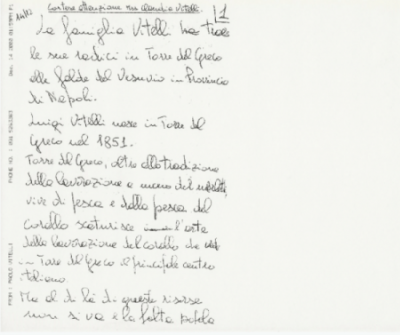 1
La famiglia Vitelli ha
le sue radici in Torre del Greco
alle falde del Vesuvio in Provincia
di Napoli.
Luigi Vitelli nasce in Torre del
Greco nel 1851.
Torre del Greco, oltre alla tradizione
della lavorazione a mano del
vive di pesca e della pesca del
corallo scaturisce l'arte
della lavorazione del corallo che
in Torre del Greco il principale centro
italiano.
Ma al di là di queste risorse
non si va e la folta